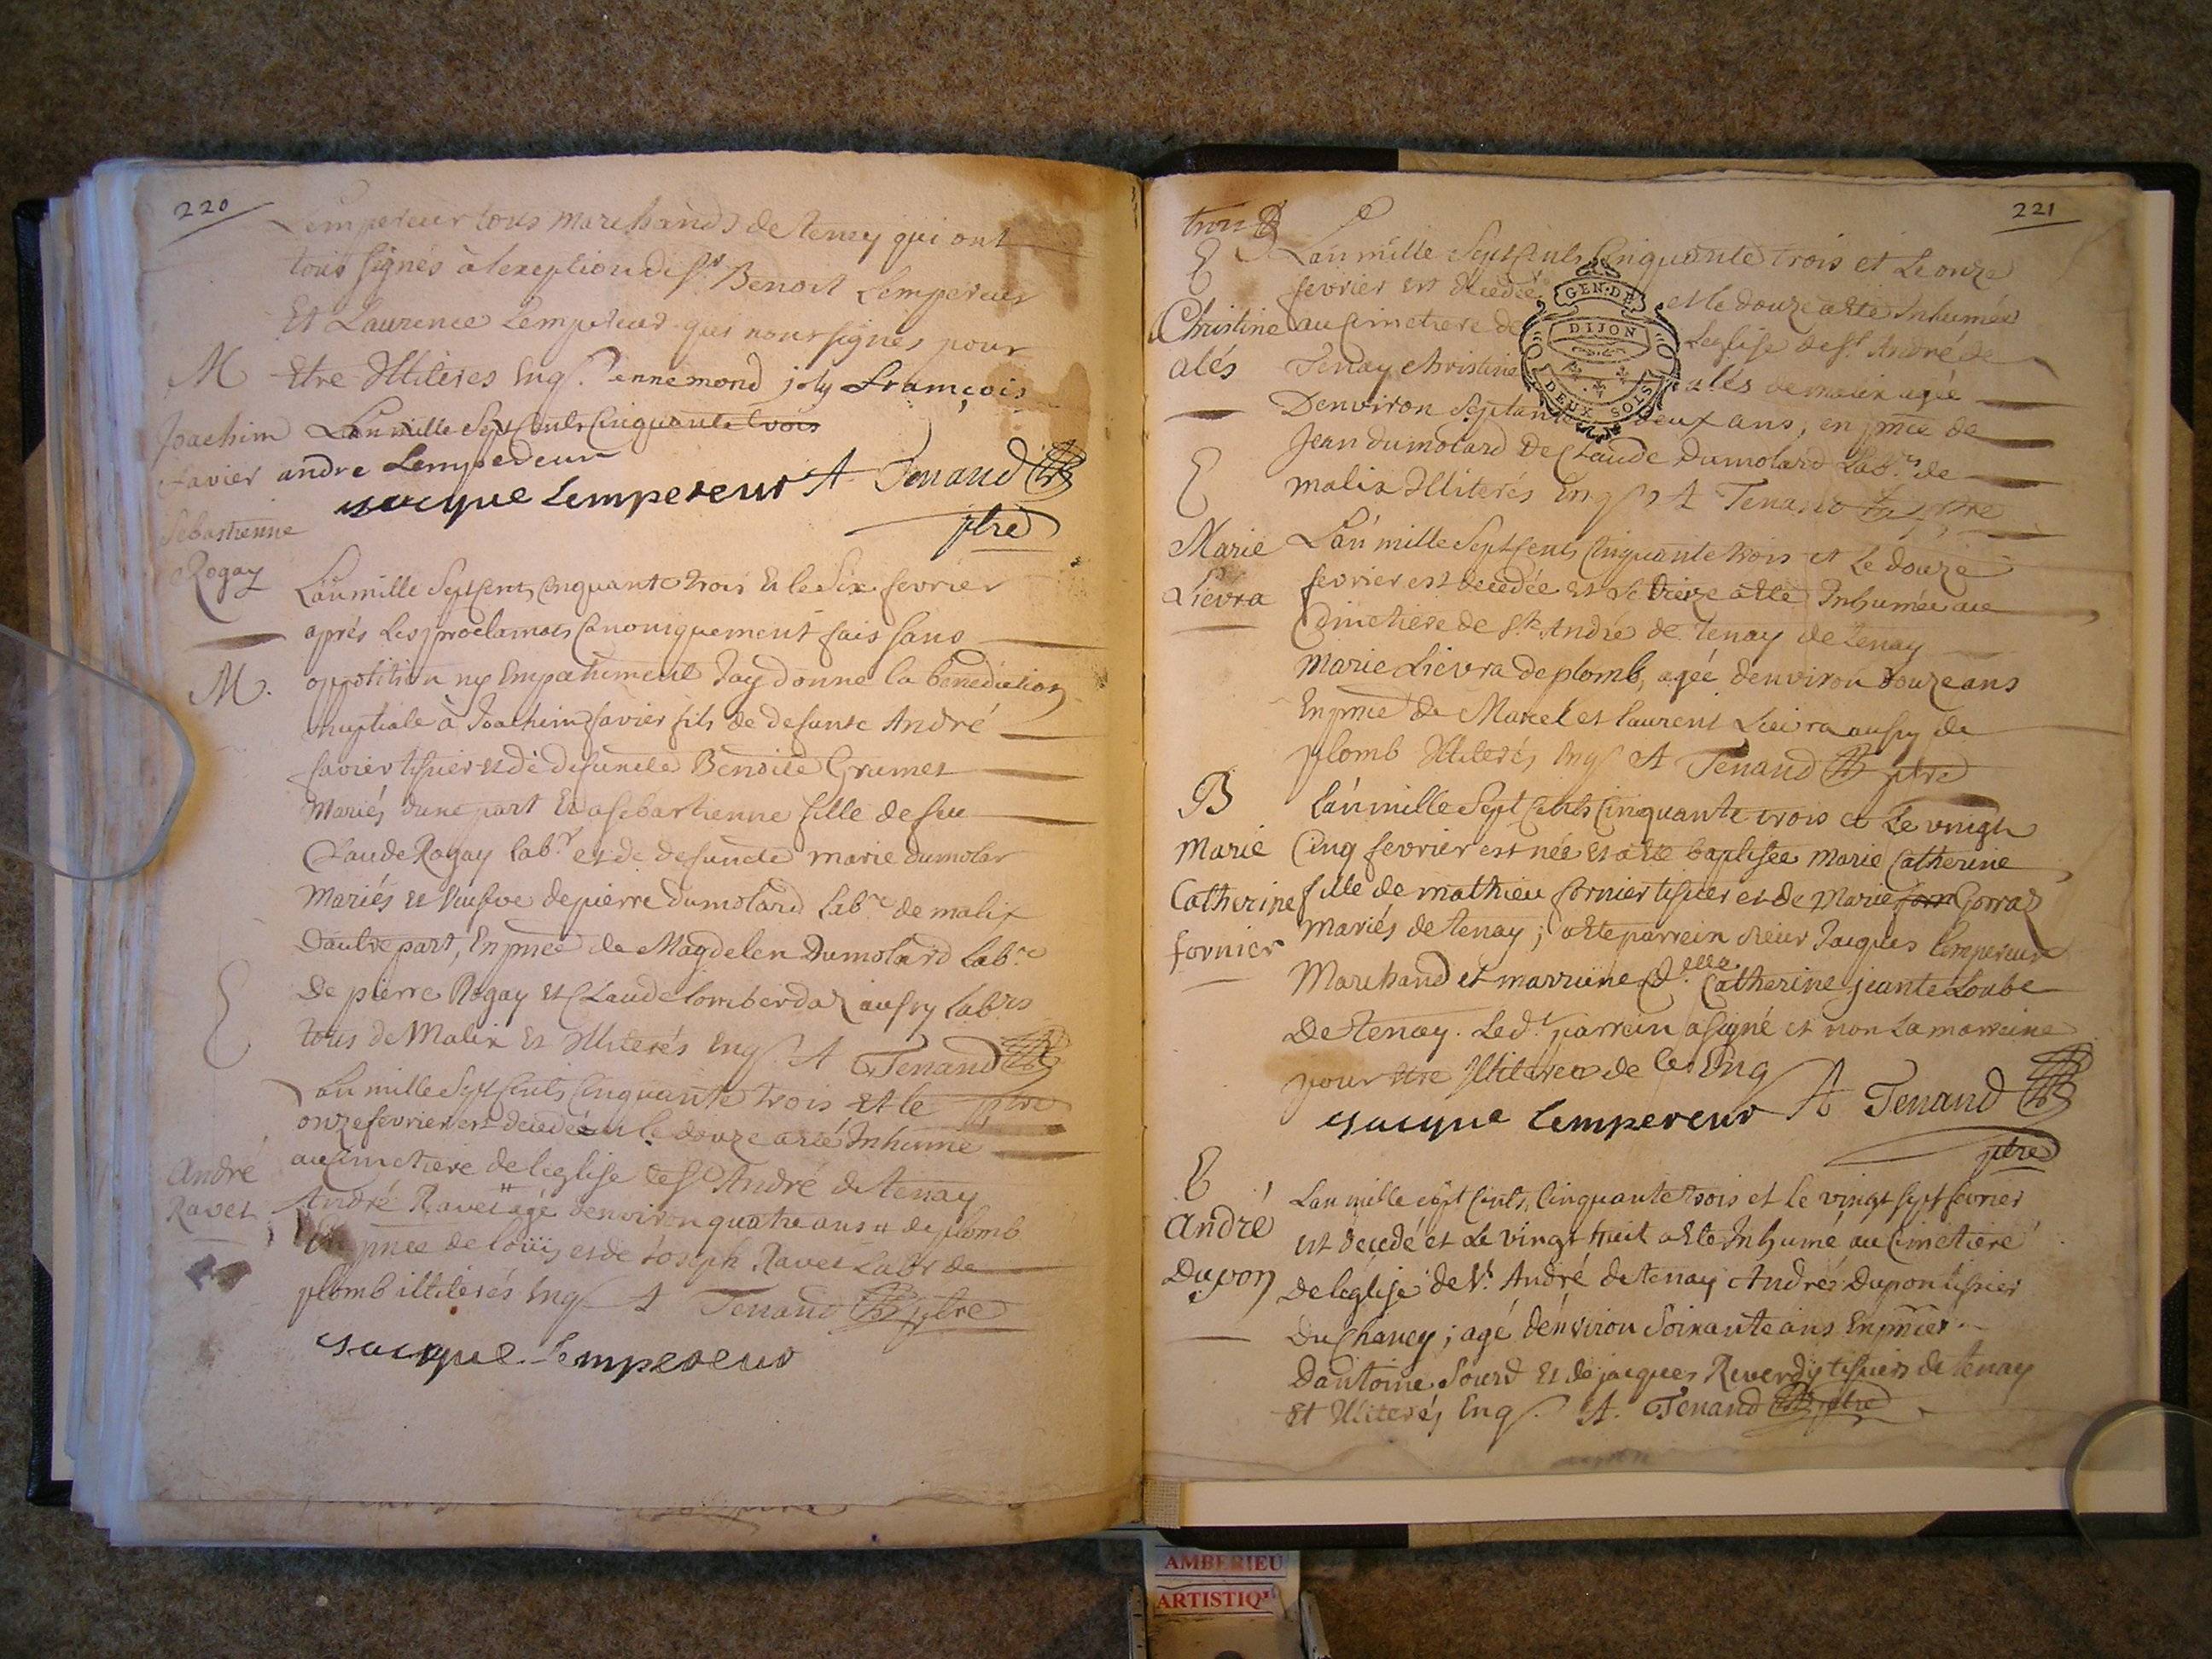 220
Lempereur tous marchands de teney qui ont
tous signés à lexeption dis.rs Benoit Lempereur
Et Laurence Lempereur qui nont signés pour
M
Etre Illiterés Enq. ennemond joly François
Joachim
Favier
L'an mille Sept Cents Cinquante trois
andre Lempedeur
jacque Lempereur A Tenand
ptre
Sebastienne
Rogay
L'an mille Sept Cents Cinquante trois Et le Six fevrier
aprés Les proclamats Canoniquement fais sans
M.
oppotition ny Empechement Jay donne la benediction
nuptiale à Joachim favier fils de defunt André
favier tissier et de defuncte Benoite Grumet
Mariés dune part Et a sebastienne fille de feu
Claude Rogay lab.r et de defuncte marie dumolar
Mariés et veufve de pierre Dumolard Lab.r de malix
Dautre part, En pnce de Magdelen Dumolard Lab.re
De pierre Rogay et Claude lomberdaz aussy Lab.rs
tous de Malix Et Illiterés Enq. A Tenand
ptre
E
André
Ravet
L'an mille Sept Cents Cinquante trois Et le
onze fevrier est decedé et le douze a eté Inhumé
au Cimetiere de leglise de S.t André de tenay
André Ravet agé denviron quatre ans de plomb
En pnce de loüis et de Joseph Ravet Lab.rs de
plomb illiterés Enq. A Tenand ptre
jacque Lempereur
221
trois
E
Christine
alés
L'an mille Sept Cents Cinquante trois et Le onze
fevrier est decedée et le douze a ete Inhumée
au Cimetiere de Leglise de S.t André de
Tenay Christine alés de malix agée
GEN. DE
DIJON
DEUX SOLS
Denviron Septante deux ans, en pnce de
Jean dumolard De Claude Dumolard Lab.rs de
malix Illiterés Enq. A Tenand ptre
E
Marie
Lievra
L'an mille Sept Cents Cinquante trois et Le douze
fevrier est decedée et Le treize a eté Inhumée au
Cimetiere de S.t André de tenay de tenay
Marie Lievra de plomb, agée denviron douze ans
En pnce de Marcel et laurent Lievra aussy de
plomb Illiterés Enq. A Tenand ptre
B
Marie
Catherine
fornier
L'an mille Sept Cents Cinquante trois et Le vingt
Cinq fevrier est née et a eté baptisée Marie Catherine
fille de mathieu fornier tissier et de Marie Gorraz
mariés de tenay; a ete parrein sieur Jacques lempereur
Marchand et marreine d.elle Catherine jeante Loube
De tenay. Led.t parrein a signé et non La marreine
pour etre Illiteree de Ce Enq
jacque Lempereur A Tenand
ptre
E
André
Dupon
L'an mille sept Cents Cinquante trois et le vingt sept fevrier
est decedé et Le vingt huit a ete Inhumé au Cimetiere
De leglise de S.t André de tenay André Dupon tissier
Du Chaney; agé denviron Soixante ans En pnce
Dantoine Sourd et de jacques Reverdy tissiers de tenay
Et Illiterés Enq. A. Tenand ptre
AMBERIEU
ARTISTIQ